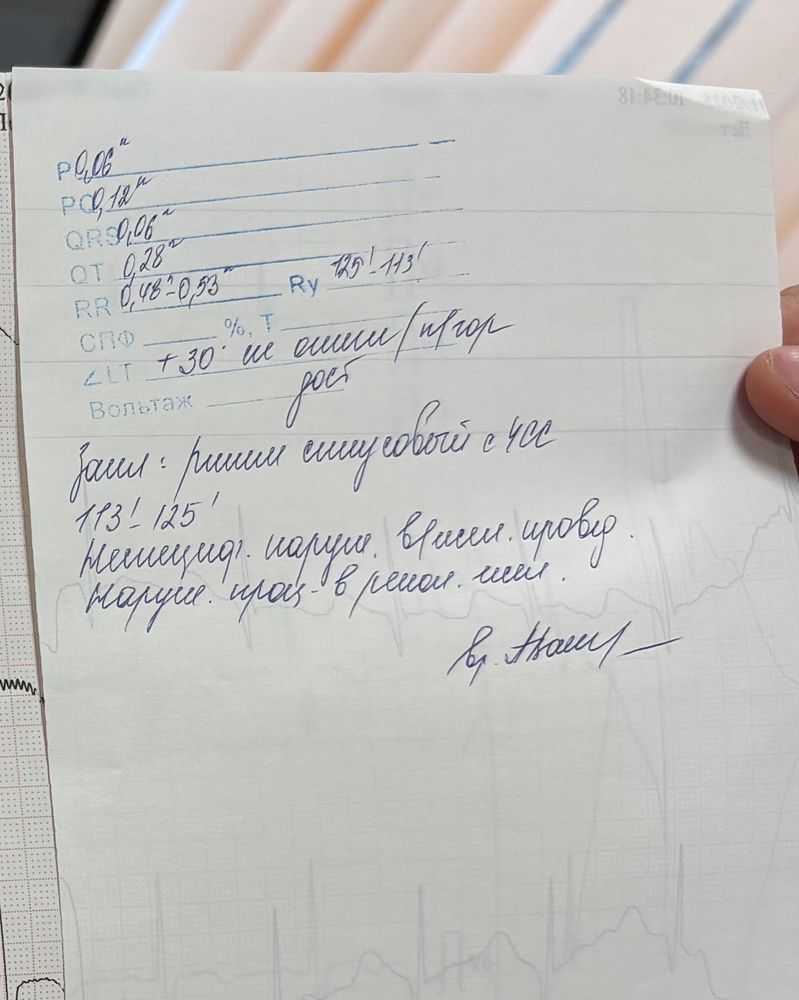 10:34:18
P 0,06"
PQ 0,12"
QRS 0,06"
QT 0,28"
RR 0,48"-0,53" Ry 125'-113'
СПФ %, T
∠LT +30° не откл/п/гор
Вольтаж дост
Закл: ритм синусовый с ЧСС
113'-125'
Неспециф. наруш. в/жел. провед.
Наруш. проц-в репол. жел.
Вр.